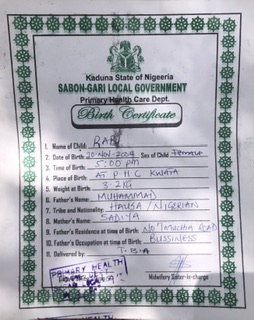 Kaduna State of Nigeria
SABON-GARI LOCAL GOVERNMENT
Primary Health Care Dept.
Birth Certificate
1. Name of Child: RABI
2. Date of Birth 20-NOV-2004 Sex of Child Female
3. Time of Birth 5:00 PM
4. Place of Birth AT P H C KWATA
5. Weight at Birth 3.2kg
6. Father's Name: MUHAMMAD
7. Tribe and Nationality HAUSA/NIGERIAN
8. Mother's Name: SADIYA
9. Father's Residence at time of Birth: ROAD
10. Father's Occupation at time of Birth BUSSINESS
11. Delivered by T.B.A
PRIMARY HEALTH
Midwifery Sister-in-charge